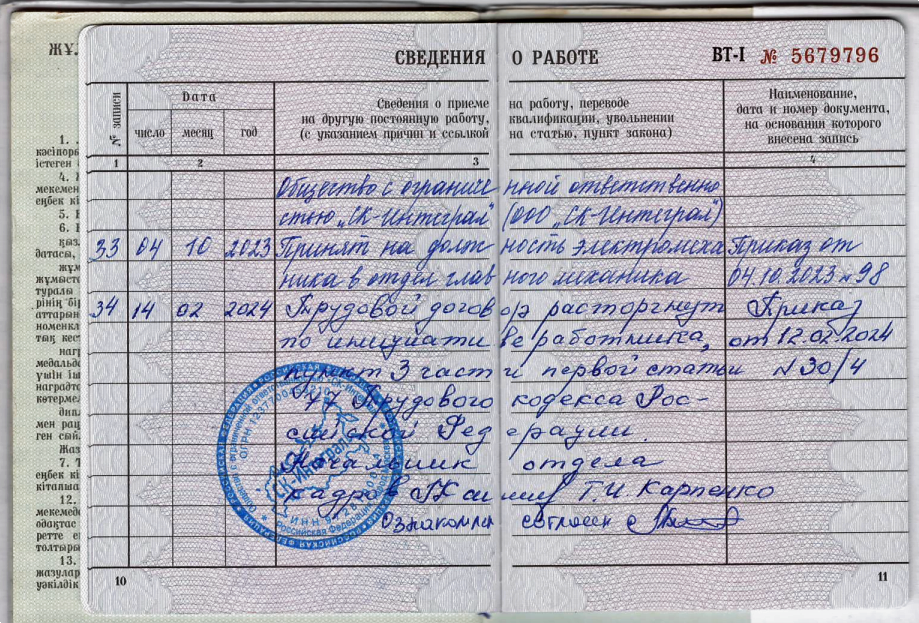 ЖҰ
СВЕДЕНИЯ О РАБОТЕ ВТ-I № 5679796
№ записи
Дата
число месяц год
Сведения о приеме на работу, переводе
на другую постоянную работу, квалификации, увольнении
(с указанием причин и ссылкой на статью, пункт закона)
Наименование,
дата и номер документа,
на основании которого
внесена запись
1 2 3 4
Общество с ограниченной ответственно
стью „СК-Интеграл" (ООО „СК-Интеграл")
33 04 10 2023 Принят на должность электромеха Приказ от
ника в отдел главного механика 04.10.2023 №98
34 14 02 2024 Трудовой договор расторгнут Приказ
по инициативе работника, от 12.02.2024
пункт 3 части первой статьи №30/4
77 Трудового кодекса Рос-
сийской Федерации.
Начальник отдела
кадров Т.И Карпенко
Ознакомлен согласен
СК-Интеграл
ИНН
Российская Федерация
10 11
1.
кәсіпоры
істеген
4.
мекемен
еңбек кі
5.
6.
қыз
датасы,
жұм
жұмыст
туралы
рінің бір
аттарын
номенкл
тық кес
нагр
медальд
үшін
наградто
көтермел
дипл
мен рац
ген сый
Жаз
7.
еңбек кі
кітапша
12.
мекемеде
одақтас
ретте
толтыры
13.
жазулар
уәкілдік